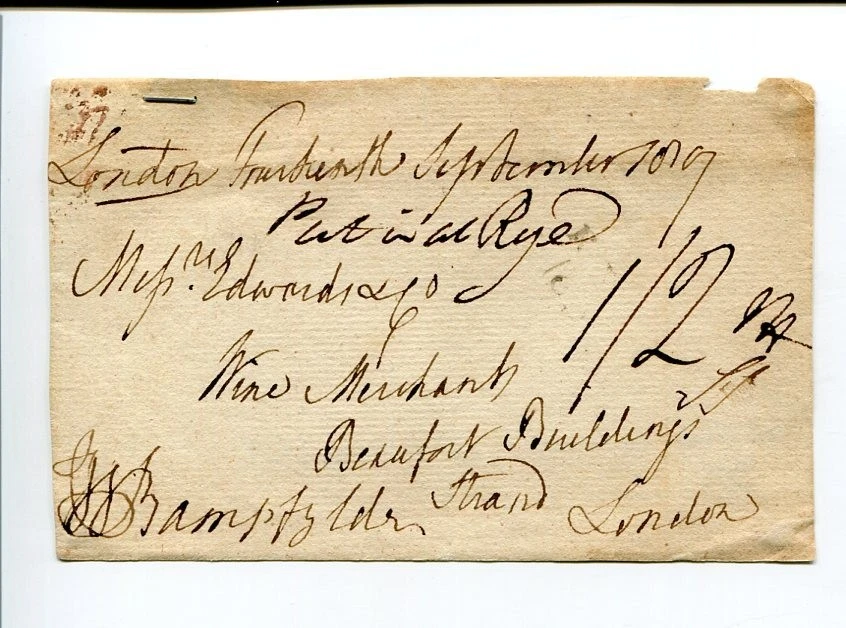 London Fourteenth September 1807
Put in at Rye
Messrs. Edwards & Co
1/2
Wine Merchants
Beaufort Buildings
Strand
London
Bampfylde